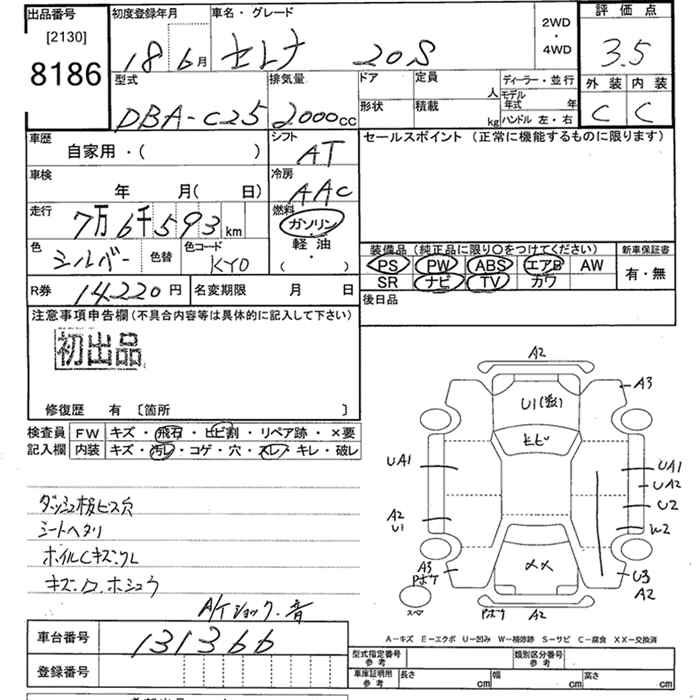 出品番号
[2130]
8186
初度登録年月
18 6月
車名・グレード
セレナ 20S
2WD
・
4WD
評価点
3.5
外装 内装
C C
型式
DBA-C25
排気量
2000cc
ドア
定員
人
ディーラー・並行
モデル
年式 年
形状
積載
kg
ハンドル 左・右
車歴
自家用・( )
シフト
AT
セールスポイント (正常に機能するものに限ります)
車検
年 月( 日)
冷房
AAC
走行
7万6千593km
燃料
ガソリン
・
軽油
( )
色
シルバー
色替
色コード
KY0
装備品 (純正品に限り○をつけてください)
新車保証書
PS PW ABS エアB AW
SR ナビ TV カワ
有・無
R券
14220円
名変期限 月 日
後日品
注意事項申告欄(不具合内容等は具体的に記入して下さい)
初出品
修復歴 有 [箇所 ]
検査員
記入欄
FW キズ・飛石・ヒビ割・リペア跡・×要
内装 キズ・汚レ・コゲ・穴・スレ・キレ・破レ
ダッシュ板ビス穴
シートヘタリ
ホイルCキズ・クレ
キズ・ロ・ホシュウ
A/Tショック・音
A2
A3
U1
ヒビ
UA1
UA1
UA2
U2
A2
U1
W2
A3
××
U3
A2
スペ
A2
A-キズ E-エクボ U-凹み W-補修跡 S-サビ C-腐食 XX-交換済
車台番号
131366
登録番号
型式指定番号
参考
類別区分番号
参考
車庫証明用
参考
長さ cm
幅 cm
高さ cm